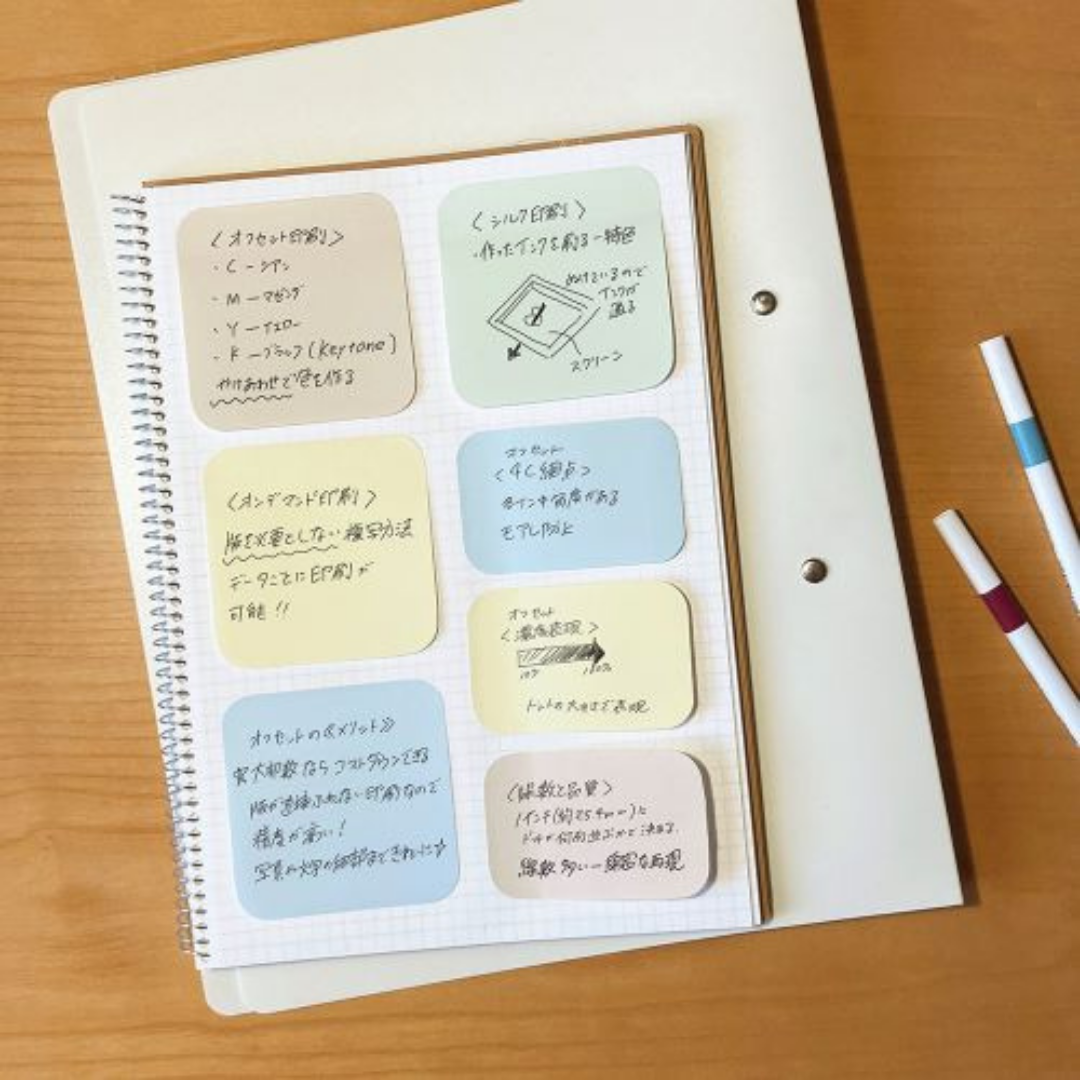 〈オフセット印刷〉
・C ー シアン
・M ー マゼンダ
・Y ー イエロー
・K ー ブラック(Keytone)
かけあわせで色を作る
〈オンデマンド印刷〉
版を必要としない複写方法
データごとに印刷が
可能!!
オフセットの《メリット》
大部数ならコストダウンできる
版が直接ふれない印刷なので
精度が高い!
写真や文字の細部まできれいに☆
〈シルク印刷〉
・作ったインクを刷る ー 特色
ぬけているので
インクが
通る
スクリーン
オフセット
〈4C網点〉
各インキ角度がある
モアレ防止
オフセット
〈濃度表現〉
10% 100%
ドットの大きさで表現
〈線数と品質〉
1インチ(約25.4mm)に
ドットが何列並ぶかで決まる
線数多い ー 綿密な再現